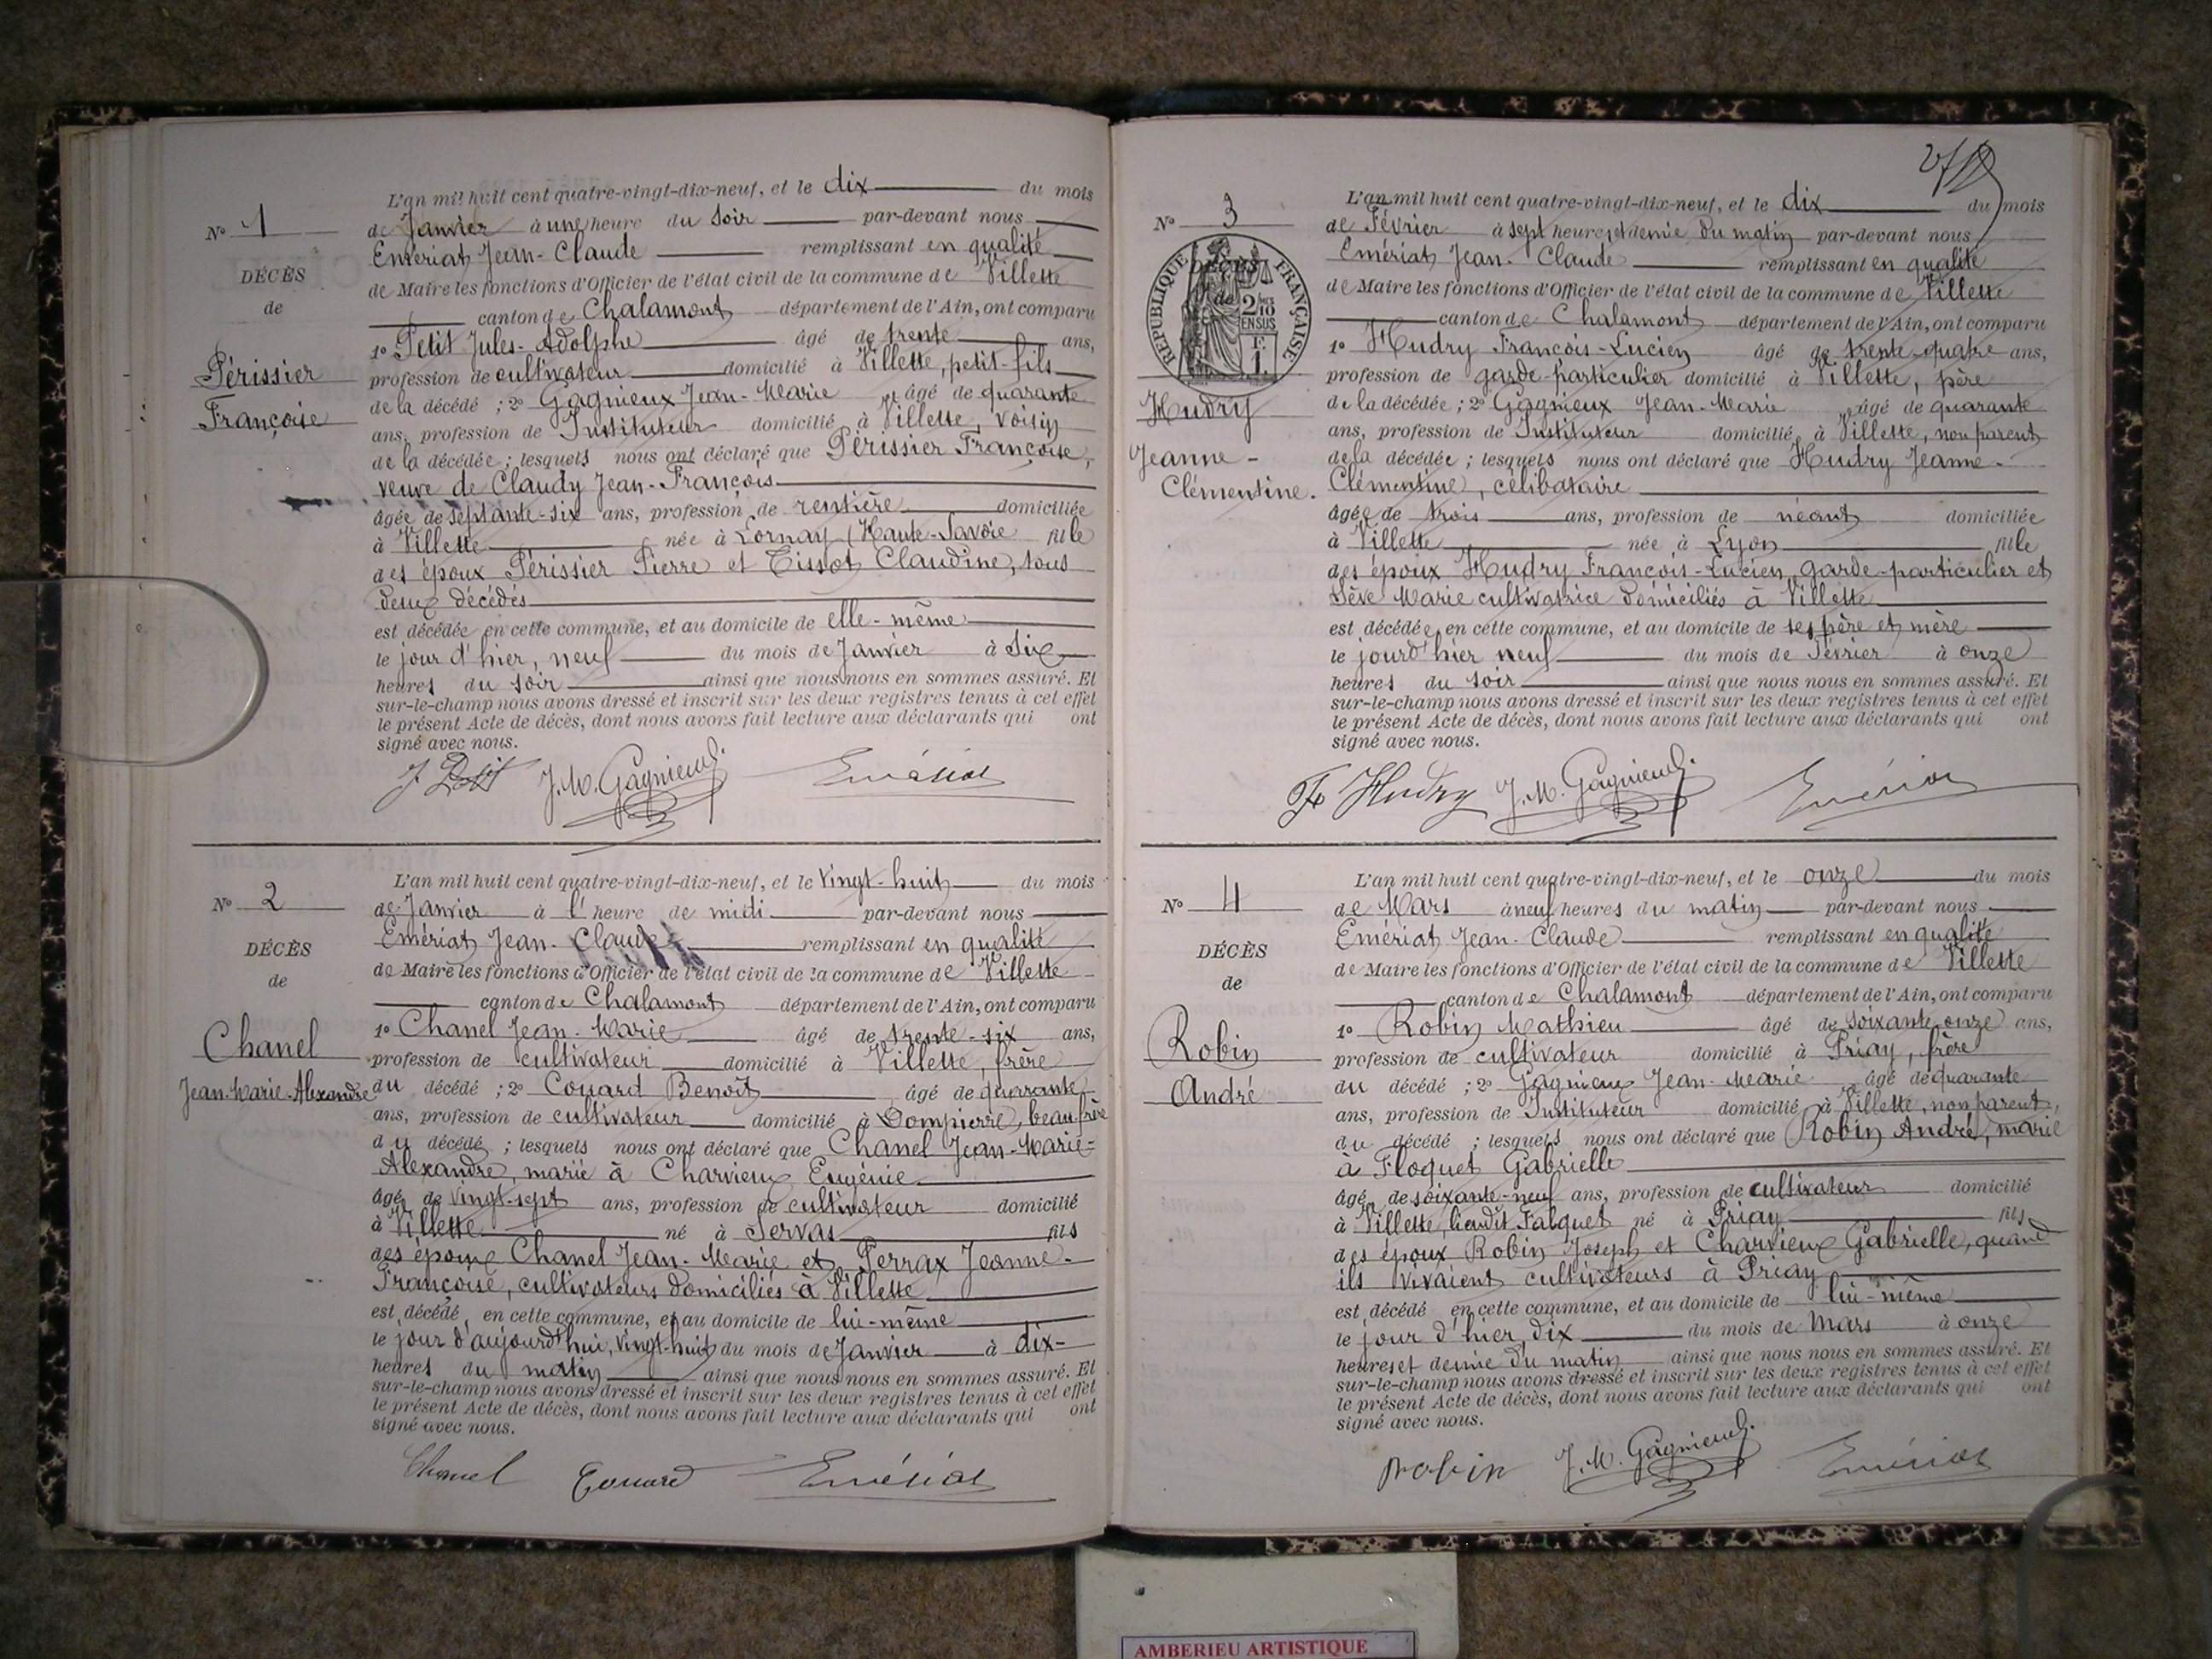 L'an mil huit cent quatre-vingt-dix-neuf, et le dix du mois
Nº 1
de Janvier à une heure du soir par-devant nous
Emériat Jean-Claude remplissant en qualité
DÉCÈS
de Maire les fonctions d'Officier de l'état civil de la commune de Villette
de
canton de Chalamont département de l'Ain, ont comparu
1º Petit Jules-Adolphe âgé de trente ans,
Périssier
profession de cultivateur domicilié à Villette, petit-fils
Françoise
de la décédé ; 2º Gagnieux Jean-Marie âgé de quarante
ans, profession de Instituteur domicilié à Villette, voisin
de la décédée ; lesquels nous ont déclaré que Périssier Françoise,
veuve de Claudy Jean-François
âgée de septante-six ans, profession de rentière domiciliée
à Villette née à Lornay (Haute-Savoie fille
des époux Périssier Pierre et Tissot Claudine, tous
deux décédés
est décédée en cette commune, et au domicile de elle-même
le jour d'hier, neuf du mois de Janvier à six
heures du soir ainsi que nous nous en sommes assuré. Et
sur-le-champ nous avons dressé et inscrit sur les deux registres tenus à cet effet
le présent Acte de décès, dont nous avons fait lecture aux déclarants qui ont
signé avec nous.
J Petit J.M. Gagnieux Emériat
L'an mil huit cent quatre-vingt-dix-neuf, et le vingt-huit du mois
Nº 2
de Janvier à l'heure de midi par-devant nous
Emériat Jean-Claude remplissant en qualité
DÉCÈS
de Maire les fonctions d'Officier de l'état civil de la commune de Villette
de
canton de Chalamont département de l'Ain, ont comparu
1º Chanel Jean-Marie âgé de trente-six ans,
Chanel
profession de cultivateur domicilié à Villette, frère
Jean-Marie-Alexandre
du décédé ; 2º Couard Benoît âgé de quarante
ans, profession de cultivateur domicilié à Dompierre, beau frère
du décédé ; lesquels nous ont déclaré que Chanel Jean-Marie-
Alexandre, marié à Charvieux Eugénie
âgé de vingt-sept ans, profession de cultivateur domicilié
à Villette né à Servas fils
des époux Chanel Jean-Marie et Perrax Jeanne-
Françoise, cultivateurs domiciliés à Villette
est décédé en cette commune, et au domicile de lui-même
le jour d'aujourd'hui, vingt-huit du mois de Janvier à dix-
heures du matin ainsi que nous nous en sommes assuré. Et
sur-le-champ nous avons dressé et inscrit sur les deux registres tenus à cet effet
le présent Acte de décès, dont nous avons fait lecture aux déclarants qui ont
signé avec nous.
Chanel Couard Emériat
L'an mil huit cent quatre-vingt-dix-neuf, et le dix du mois
Nº 3
de Février à sept heures et demie du matin par-devant nous
Emériat Jean-Claude remplissant en qualité
RÉPUBLIQUE FRANÇAISE
DÉCÈS
de
2/10 EN SUS
F. 1.
de Maire les fonctions d'Officier de l'état civil de la commune de Villette
canton de Chalamont département de l'Ain, ont comparu
1º Hudry François-Lucien âgé de trente-quatre ans,
profession de garde-particulier domicilié à Villette, père
Hudry
de la décédée ; 2º Gagnieux Jean-Marie âgé de quarante
ans, profession de Instituteur domicilié à Villette, non parent
Jeanne-
de la décédée ; lesquels nous ont déclaré que Hudry Jeanne-
Clémentine.
Clémentine, célibataire
âgée de trois ans, profession de néant domiciliée
à Villette née à Lyon fille
des époux Hudry François-Lucien, garde-particulier et
Sève Marie cultivatrice domiciliés à Villette
est décédée en cette commune, et au domicile de ses père et mère
le jour d'hier neuf du mois de Février à onze
heures du soir ainsi que nous nous en sommes assuré. Et
sur-le-champ nous avons dressé et inscrit sur les deux registres tenus à cet effet
le présent Acte de décès, dont nous avons fait lecture aux déclarants qui ont
signé avec nous.
Hudry J.M. Gagnieux Emériat
L'an mil huit cent quatre-vingt-dix-neuf, et le onze du mois
Nº 4
de Mars à neuf heures du matin par-devant nous
Emériat Jean-Claude remplissant en qualité
DÉCÈS
de Maire les fonctions d'Officier de l'état civil de la commune de Villette
de
canton de Chalamont département de l'Ain, ont comparu
1º Robin Mathieu âgé de soixante-onze ans,
Robin
profession de cultivateur domicilié à Priay, frère
André
du décédé ; 2º Gagnieux Jean-Marie âgé de quarante
ans, profession de Instituteur domicilié à Villette, non parent,
du décédé ; lesquels nous ont déclaré que Robin André, marié
à Floquet Gabrielle
âgé de soixante-neuf ans, profession de cultivateur domicilié
à Villette, lieudit Falquet né à Priay fils
des époux Robin Joseph et Charvieux Gabrielle, quand
ils vivaient cultivateurs à Priay
est décédé en cette commune, et au domicile de lui-même
le jour d'hier, dix du mois de Mars à onze
heures et demie du matin ainsi que nous nous en sommes assuré. Et
sur-le-champ nous avons dressé et inscrit sur les deux registres tenus à cet effet
le présent Acte de décès, dont nous avons fait lecture aux déclarants qui ont
signé avec nous.
Robin J.M. Gagnieux Emériat
AMBERIEU ARTISTIQUE